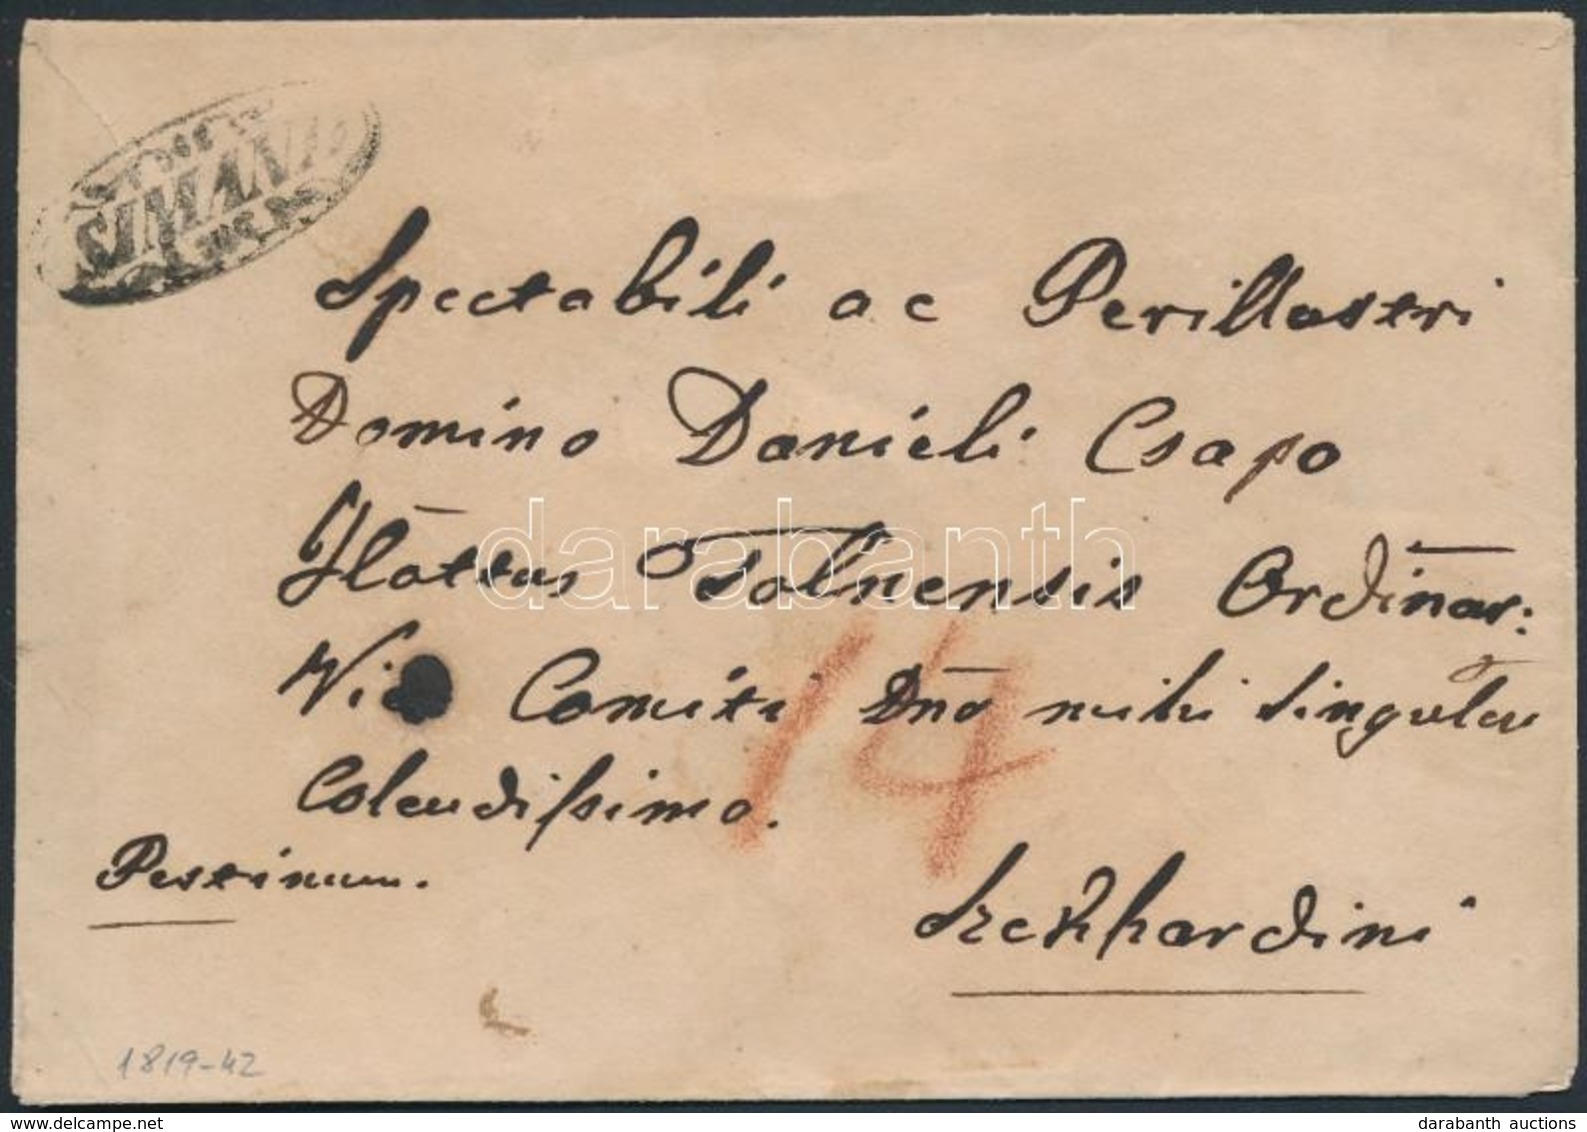 SIMAND
Spectabili ac Perillustri
Domino Danieli Csapo
Ilōttus Tolnensis Ordinār:
Vice Comiti Dno mihi singular
Colendissimo.
14
Pestinum.
Szekhardini
1819-42
darabanth
delcampe.net
darabanth auctions